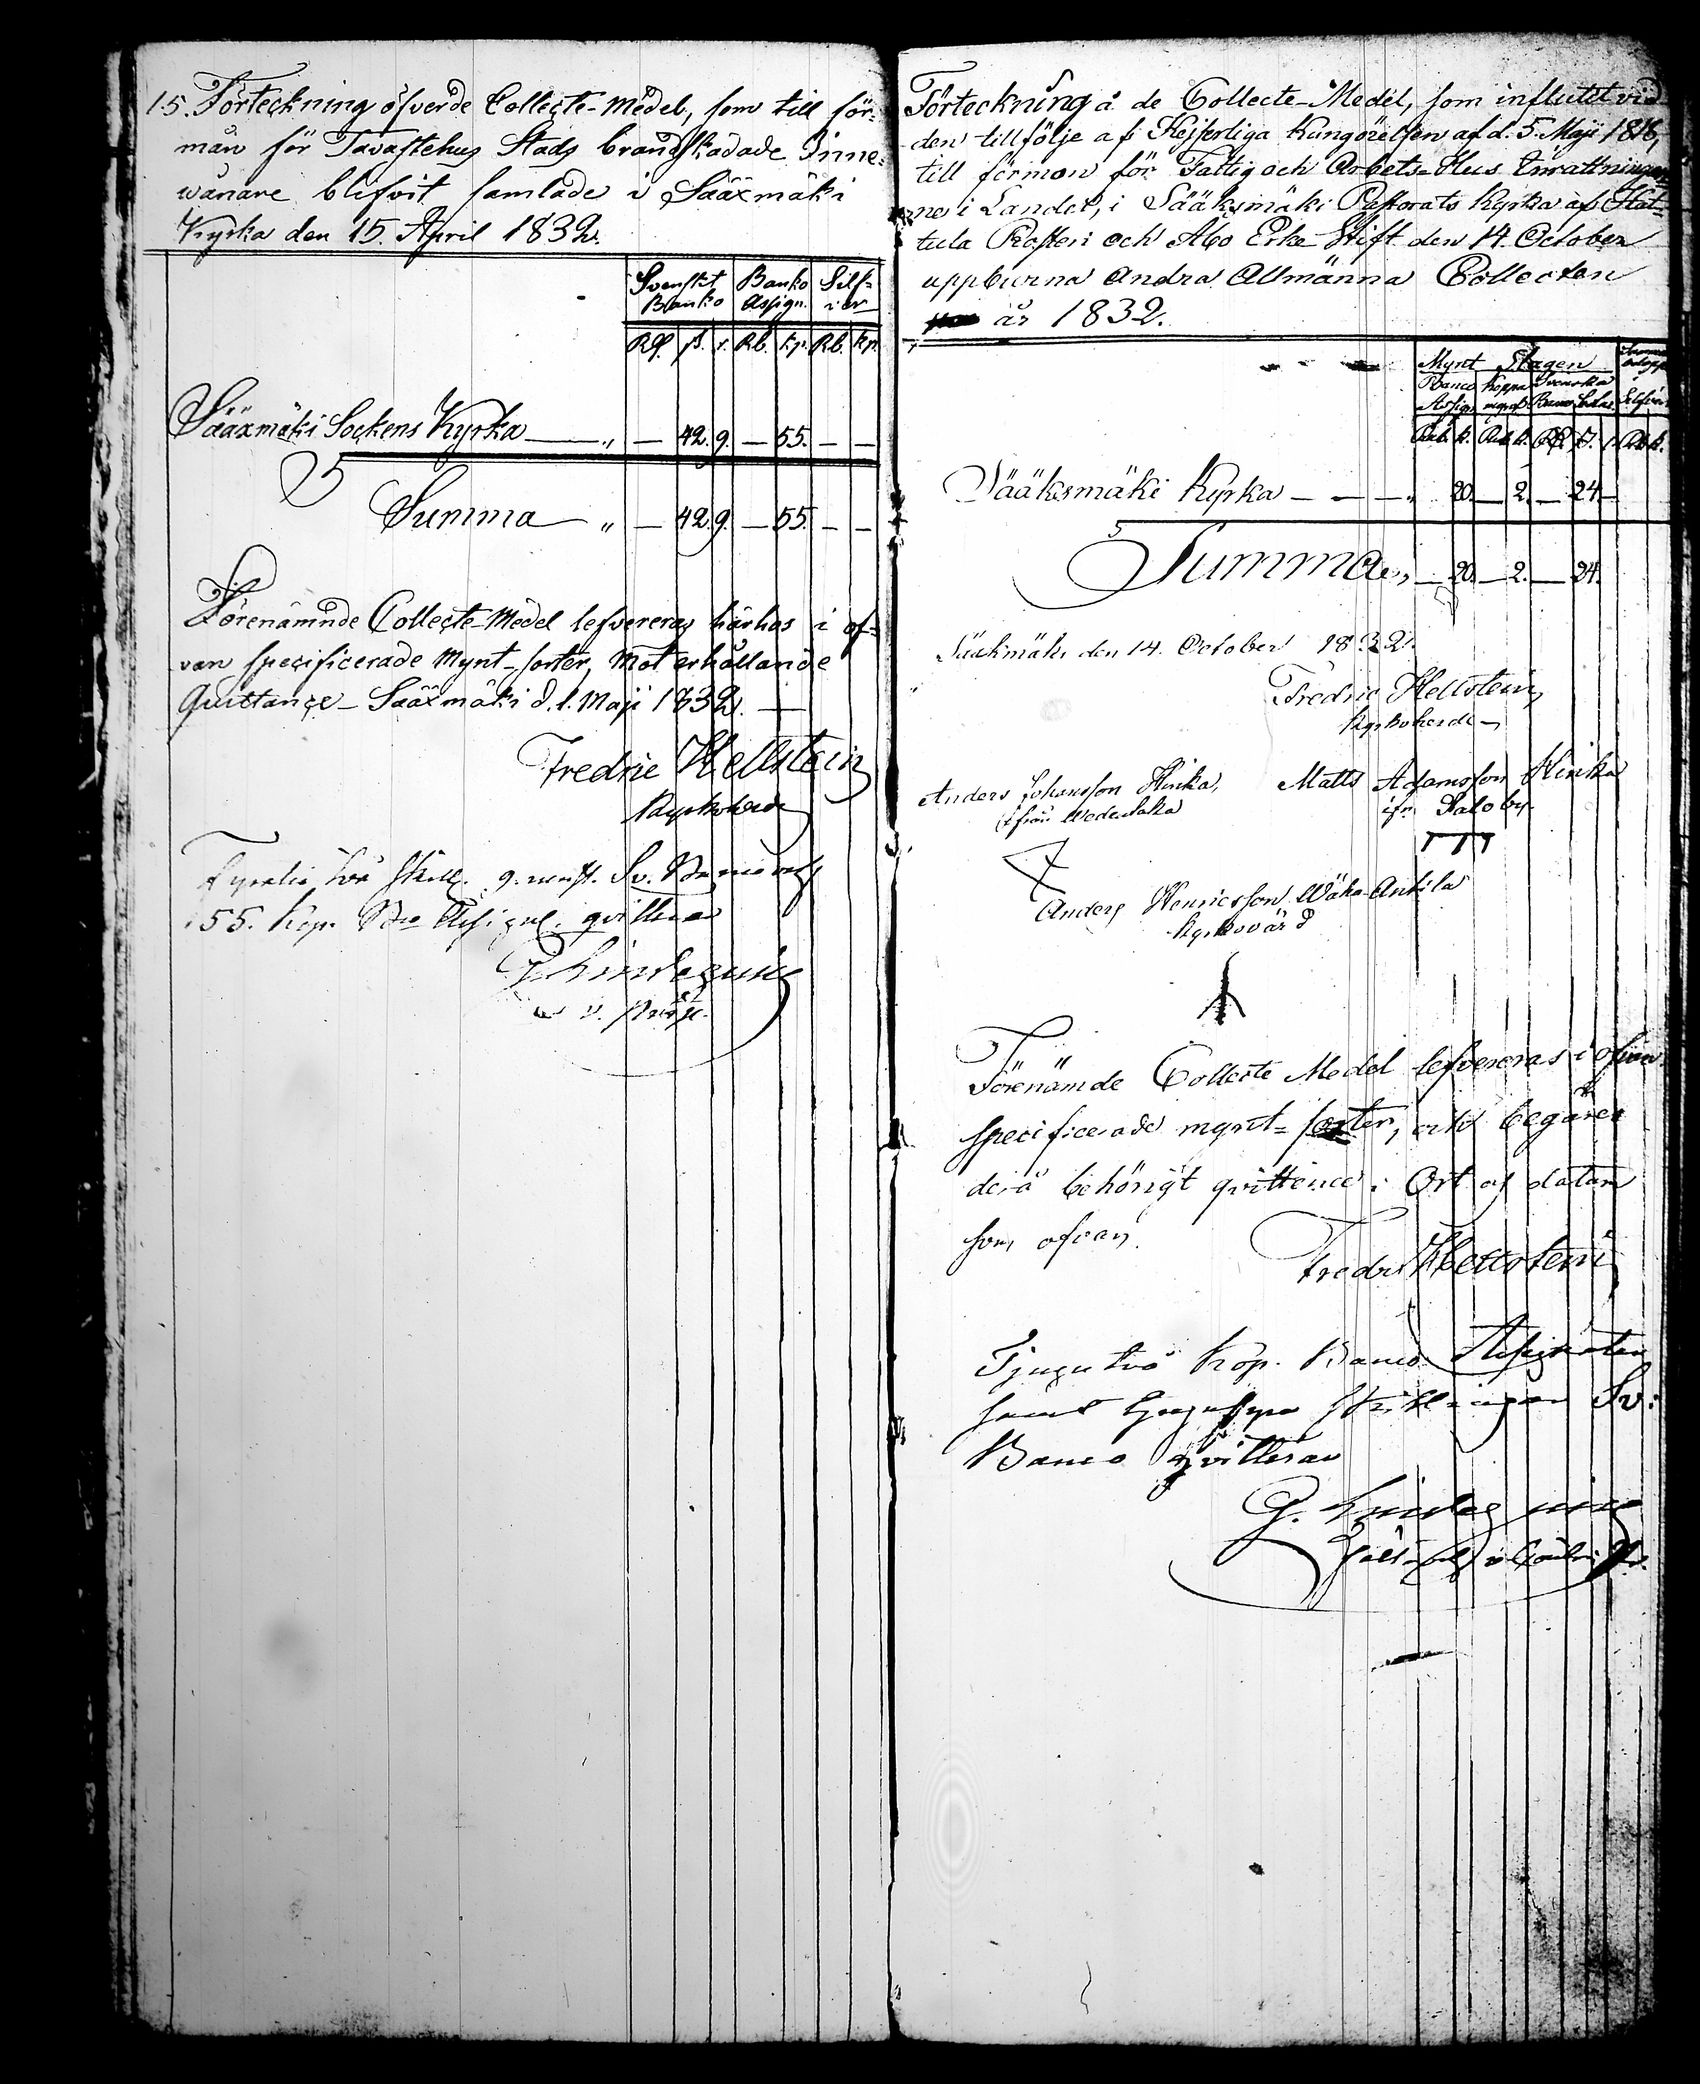 15. Förteckning öfver de Collecte-Medel, som till för-
mån för Tavastehus Stads brandskadade Inne-
wånare blifvit samlade i Sääxmäki
Kyrka den 15. April 1832.
Svenskt Banko Banko Assign. Silfver
Rd. ß. r. Rb. kp. Rb. kp.
Sääxmäki Sockens Kyrka — „ — 42. 9. — 55. — —
Summa — „ — 42. 9. — 55. — —
Förenämnde Collecte-Medel lefvereras härhos i of-
van specificerade Mynt-sorter, mot erhållande
Quittance — Sääxmäki d. 1. Maji 1832. —
Fredric Hellstein
Kyrkoherde
Fyratio två skill. 9. runst. Sv. Banco och
55. kop. Bco Assign. qvitteras
G Lindeqvist
Förteckning å de Collecte-Medel, som influtit vid
den tillfölje af Kejserliga Kungörelsen af d. 5. Maji 1818,
till förmon för Fattig och Arbets-Hus Inrättningar-
ne i Landet, i Sääksmäki Pastorats Kyrka af Hat-
tula Prosteri och Åbo Erke-Stift den 14. October
uppburna Andra Allmänna Collecten
år 1832.
Mynt Slagen
Banco Assign. Koppar Svenska Banco Sedlar Silfver
Rub. k. Rub. k. Rd. ß. r. Rub. k.
Sääksmäki Kyrka — — — „ 20. — 2. — 24. —
Summa „ — 20. — 2. — 24.
Sääkmäki den 14. October 1832.
Fredric Hellstein
Kyrkoherde
Anders Johansson Hinka, Matts Adamsson Hinka
ifrån ifr. Saloby.
Anders Henricsson Wäha-Anttila
Kyrkovärd
Förenämde Collecte Medel lefvereras i ofvan
specificerade mynt-sorter, och begäres
derå behörigt qvittence. Ort och datum
som ofvan.
Fredric Hellstein
Tjugu två kop. Banco Assignater
samt tjugufyra skillingar Sv:
Banco qvitteras
G. Lindeqvist